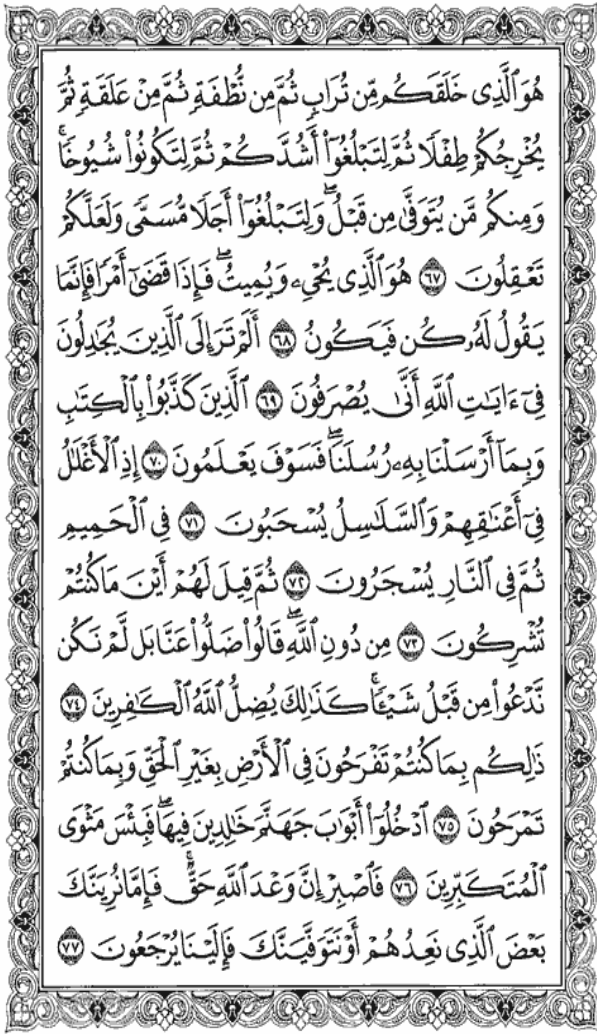 هُوَ ٱلَّذِى خَلَقَكُم مِّن تُرَابٍ ثُمَّ مِن نُّطْفَةٍ ثُمَّ مِنْ عَلَقَةٍ ثُمَّ
يُخْرِجُكُمْ طِفْلًا ثُمَّ لِتَبْلُغُوٓا۟ أَشُدَّكُمْ ثُمَّ لِتَكُونُوا۟ شُيُوخًا ۚ
وَمِنكُم مَّن يُتَوَفَّىٰ مِن قَبْلُ ۖ وَلِتَبْلُغُوٓا۟ أَجَلًا مُّسَمًّى وَلَعَلَّكُمْ
تَعْقِلُونَ ٦٧ هُوَ ٱلَّذِى يُحْىِۦ وَيُمِيتُ ۖ فَإِذَا قَضَىٰٓ أَمْرًا فَإِنَّمَا
يَقُولُ لَهُۥ كُن فَيَكُونُ ٦٨ أَلَمْ تَرَ إِلَى ٱلَّذِينَ يُجَٰدِلُونَ
فِىٓ ءَايَٰتِ ٱللَّهِ أَنَّىٰ يُصْرَفُونَ ٦٩ ٱلَّذِينَ كَذَّبُوا۟ بِٱلْكِتَٰبِ
وَبِمَآ أَرْسَلْنَا بِهِۦ رُسُلَنَا ۖ فَسَوْفَ يَعْلَمُونَ ٧٠ إِذِ ٱلْأَغْلَٰلُ
فِىٓ أَعْنَٰقِهِمْ وَٱلسَّلَٰسِلُ يُسْحَبُونَ ٧١ فِى ٱلْحَمِيمِ
ثُمَّ فِى ٱلنَّارِ يُسْجَرُونَ ٧٢ ثُمَّ قِيلَ لَهُمْ أَيْنَ مَا كُنتُمْ
تُشْرِكُونَ ٧٣ مِن دُونِ ٱللَّهِ ۖ قَالُوا۟ ضَلُّوا۟ عَنَّا بَل لَّمْ نَكُن
نَّدْعُوا۟ مِن قَبْلُ شَيْـًٔا ۚ كَذَٰلِكَ يُضِلُّ ٱللَّهُ ٱلْكَٰفِرِينَ ٧٤
ذَٰلِكُم بِمَا كُنتُمْ تَفْرَحُونَ فِى ٱلْأَرْضِ بِغَيْرِ ٱلْحَقِّ وَبِمَا كُنتُمْ
تَمْرَحُونَ ٧٥ ٱدْخُلُوٓا۟ أَبْوَٰبَ جَهَنَّمَ خَٰلِدِينَ فِيهَا ۖ فَبِئْسَ مَثْوَى
ٱلْمُتَكَبِّرِينَ ٧٦ فَٱصْبِرْ إِنَّ وَعْدَ ٱللَّهِ حَقٌّ ۚ فَإِمَّا نُرِيَنَّكَ
بَعْضَ ٱلَّذِى نَعِدُهُمْ أَوْ نَتَوَفَّيَنَّكَ فَإِلَيْنَا يُرْجَعُونَ ٧٧